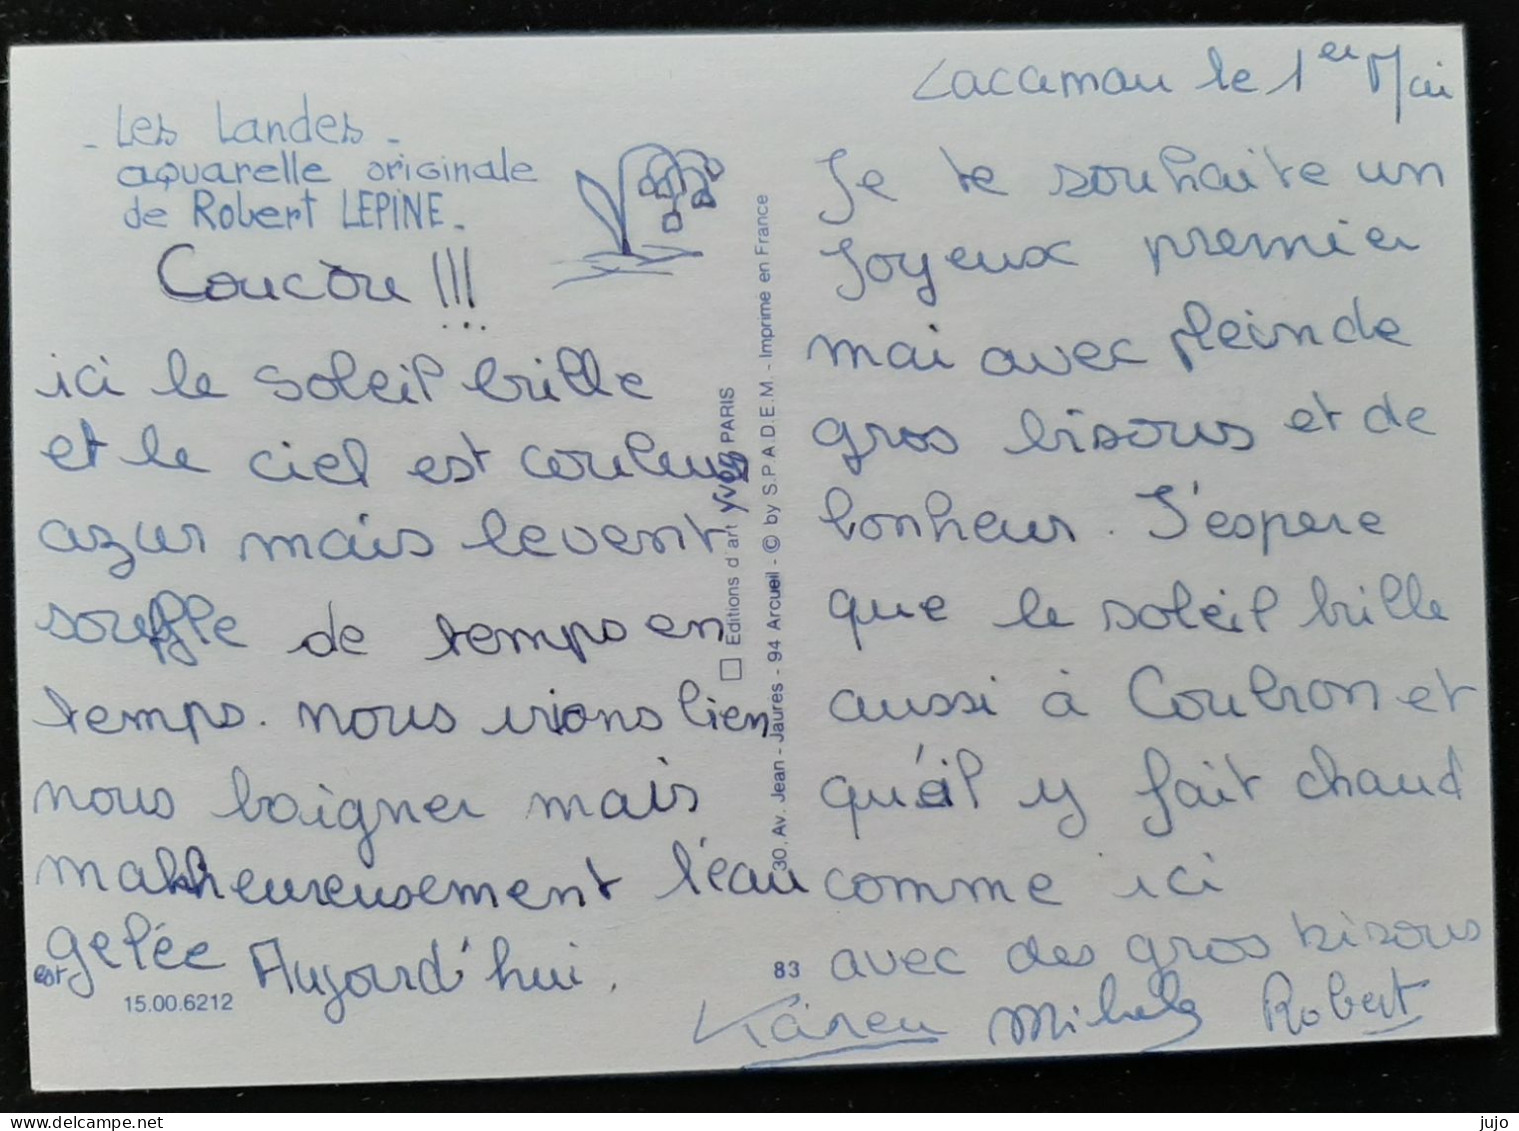 - Les Landes -
aquarelle originale
de Robert LEPINE -
Coucou !!!
ici le soleil brille
et le ciel est couleur
azur mais levent
souffle de temps en
temps. nous irions bien
nous baigner mais
malheureusement l'eau
est gelée Aujourd'hui.
15.00.6212
Editions d'art YVON PARIS
30, Av. Jean - Jaurès - 94 Arcueil - © by S.P.A.D.E.M. - Imprime en France
83
Lacamau le 1er Mai
Je te souhaite un
Joyeux premier
mai avec pleinde
gros bisous et de
bonheur. J'espere
que le soleil brille
aussi à Coubron et
qu'il y fait chaud
comme ici
avec des gros bisous
Karen Michele Robert
www.delcampe.net
jujo